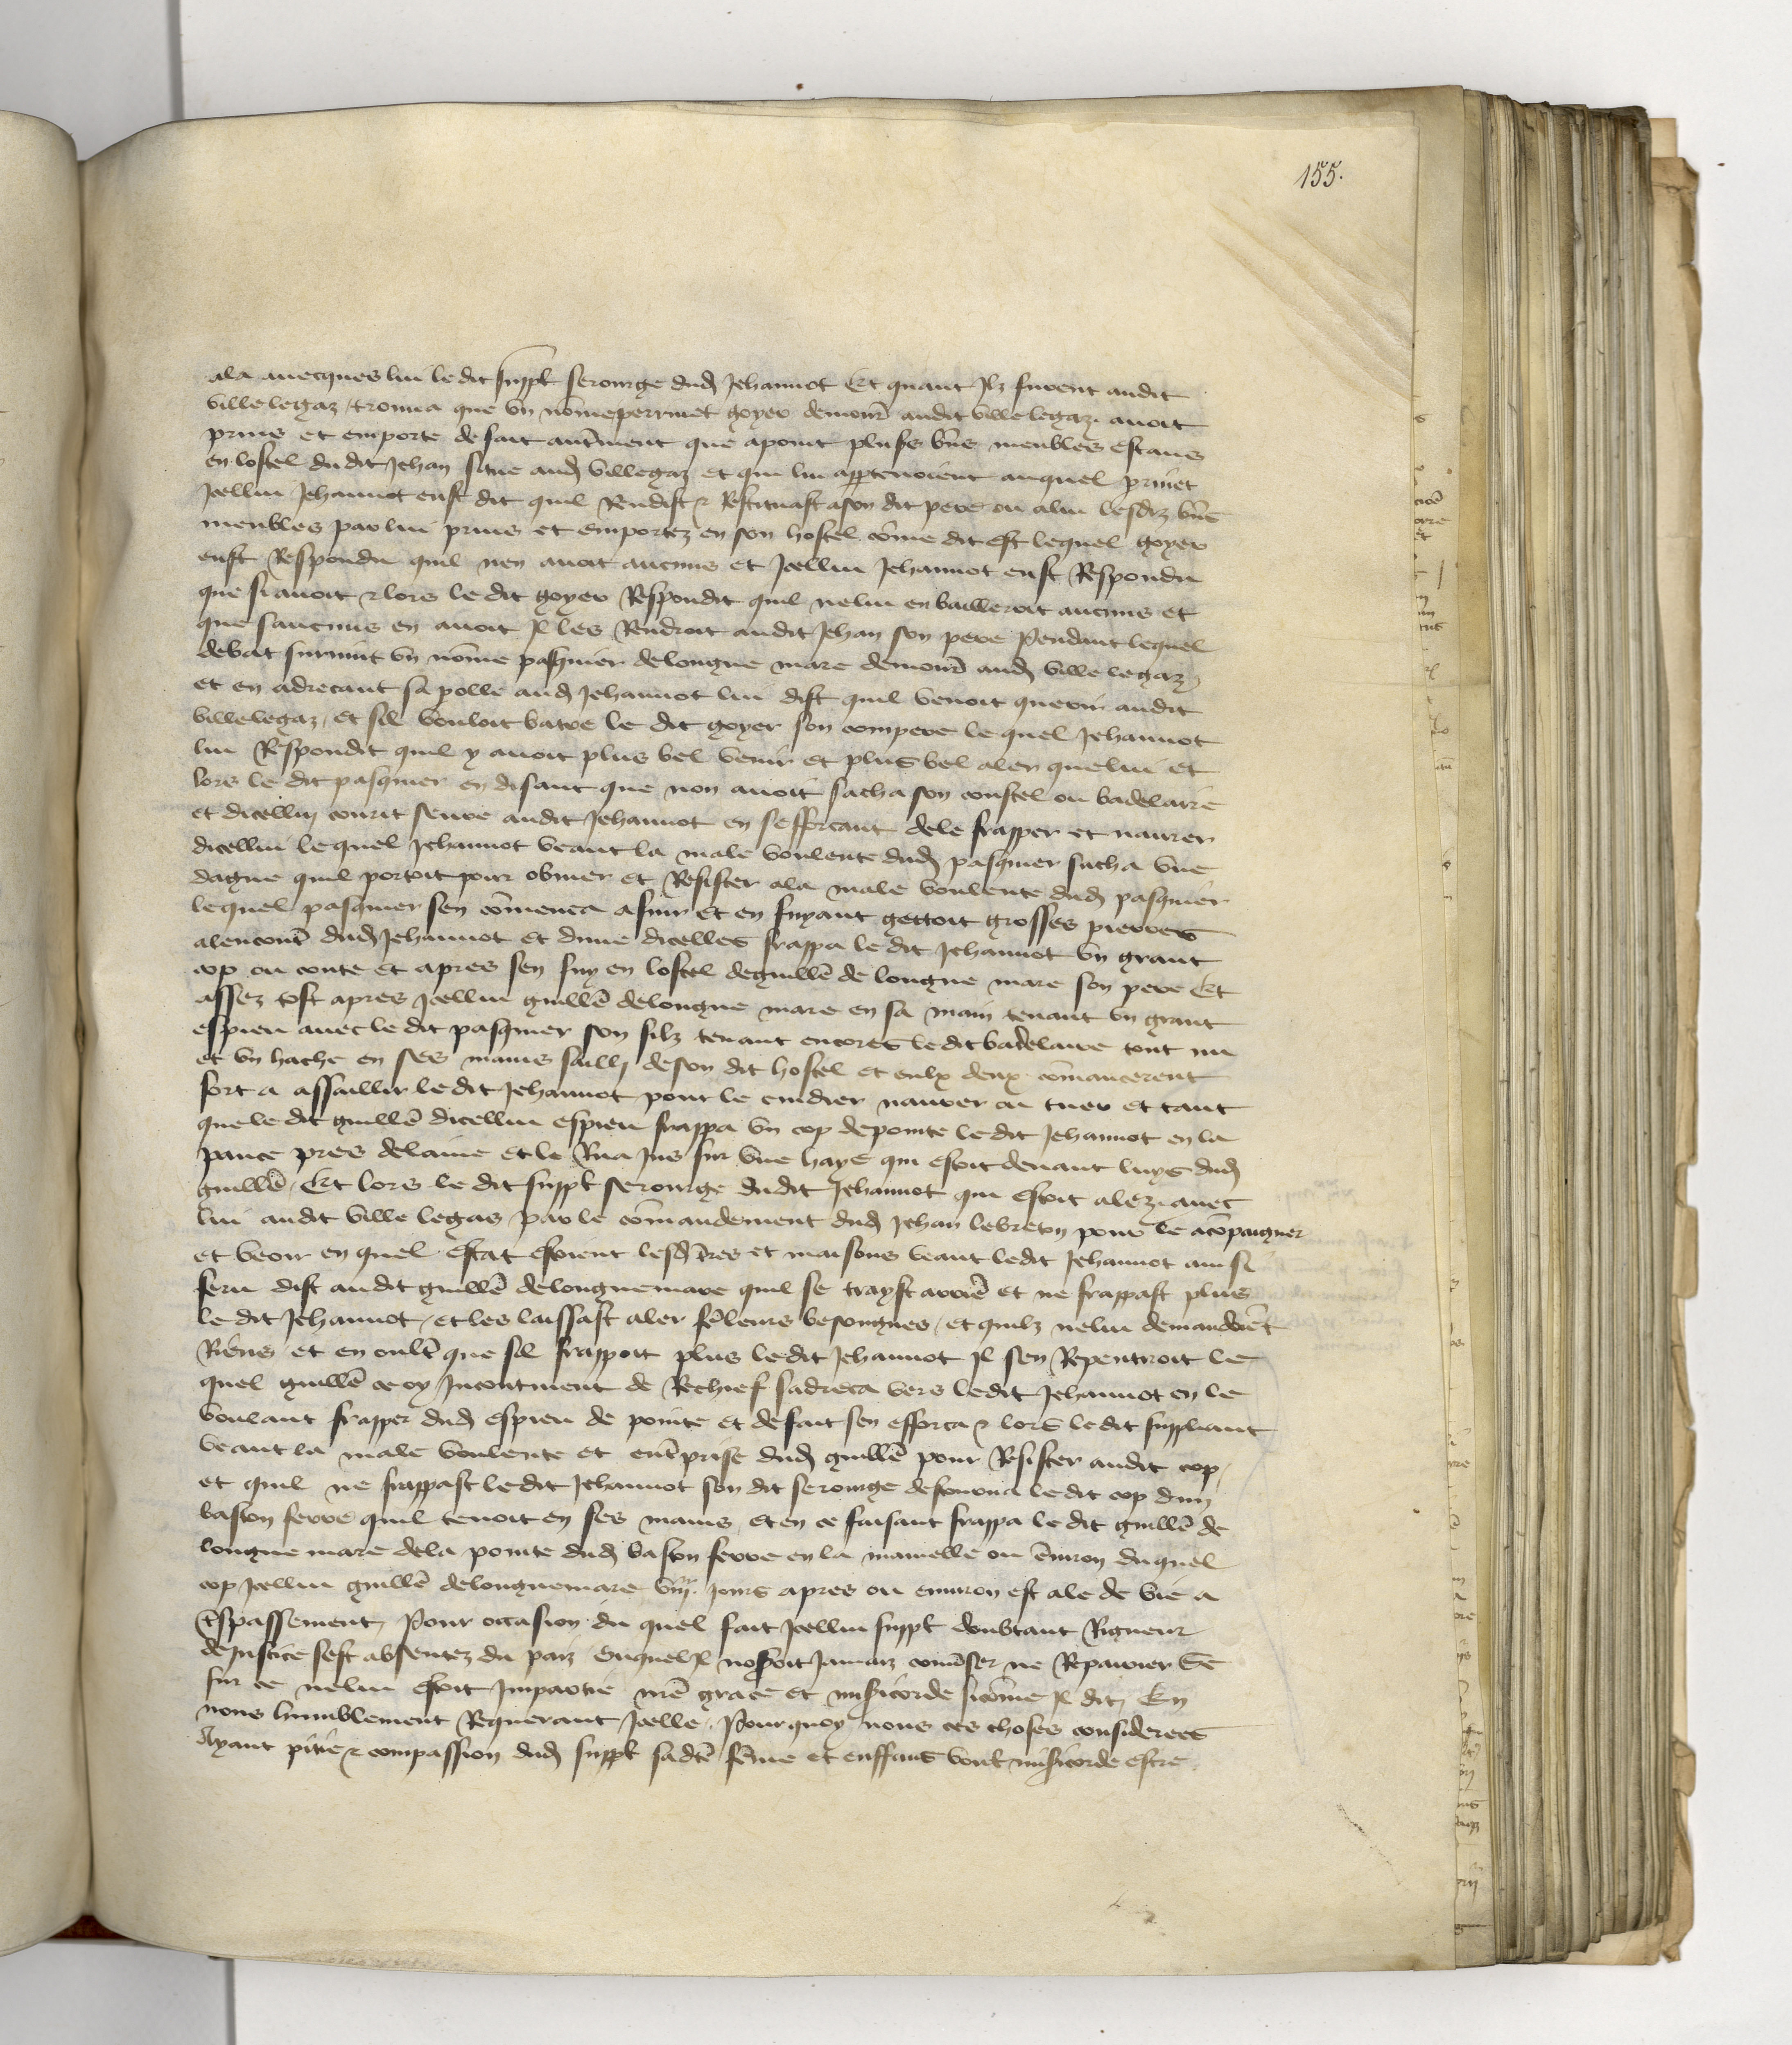 155.
ala auecques lui ledit suppl serourge dud Jehannot Et quant Ilz furent audit
villelegaz / trouua que vn nōme perrinet goyer demour audit villelegaz auoit
prins et emporte de fait autment que apoint plusrs bns meubles estans
en lostel dudit Jehan situe aud villegaz et qui lui apptenoient auquel prinet
Icellui Jehannot eust dit quil Rendist & Restituast ason dit pere ou alui lesdiz bns
meubles par lui prins et emportez en son hostel cōme dit est lequel goyer
eust Respondu quil nen auoit aucuns et Icellui Jehannot eust Respondu
que si auoit & lors ledit goyer Respondit quil nelui en bailleroit aucuns et
que saucuns en auoit Il les Rendroit audit Jehan son pere Pendant lequel
debat suruint vn nōme pasquier delongue mare demour aud ville legaz
et en adrecant sa polle aud Jehannot lui dist quil venoit querir audit
villelegaz / et sil vouloit batre le dit goyer son compere le quel Jehannot
lui Respondit quil y auoit plus bel venir et plus bel aler quelui et
lors le dit pasquier en disant que non auoit sacha son coustel ou badelaire
et dicellui courit seure audit Jehannot en sefforcant dele frapper et naurer
dicellui lequel Jehannot veant la male voulente dud pasquier sacha vne
dague quil portoit pour obuier et Resister ala male voulente dud pasquier
lequel pasquier sen cōmenca afuir et en fuyant gettoit grosses pierres
alencont dud Jehannot et dune dicelles frappa le dit Jehannot vn grant
cop ou coute et apres sen fuy en lostel deguillē de longue mare son pere Et
assez tost apres Icellui guillē delongue mare en sa main tenant vn grant
espieu auec le dit pasquier son filz tenant encores ledit badelaire tout nu
et vn hache en ses mains sailly deson dit hostel et eulx deux cōmancerent
fort a assaillir ledit Jehannot pour le cuidier naurer ou tuer et tant
que le dit guillē dicellui espieu frappa vn cop depointe ledit Jehannot en la
pance pres delaine et le Rua Jus sur vne haye qui estoit deuant luys dud
guillē / Et lors le dit suppl serourge dudit Jehannot qui estoit alez auec
lui audit ville legas / par le cōmandement dud Jehan lebreton pour le acōpaigner
et veoir en quel estat estoient lesd tres et maisons veant ledit Jehannot ainsi
feru dist audit guillē delonguemare quil se trayst arriē et ne frappast plus
le dit Jehannot / et les laissast aler fē leurs besongnes / et quilz nelui demandoiēt
Riens et en oult que sil frappoit plus ledit Jehannot Il sen Repentroit le
quel guillē ce oy Incontinent de Rechief sadreca vers ledit Jehannot en le
voulant frapper dud espieu de pointe et defait sen efforca & lors ledit suppliant
veant la male voulente et entprise dud guillē pour Resister audit cop
et quil ne frappast ledit Jehannot son dit serourge destourna ledit cop dun
baston ferre quil tenoit en ses mains / et en ce faisant frappa le dit guillē de
longue mare dela pointe dud baston ferre en la mamelle ou ēuiron duquel
cop Icellui guillē delonguemare viij. Jours apres ou enuiron est ale de vie a
tspassement / Pour occasion du quel fait Icellui suppl doubtant Rigueur
de Justice sest absentez du paiz ouquel Il noseroit Jamaiz conuser ne Repairier Se
sur ce nelui estoit Impartie nrē grace et misicorde sicōme Il dit / En
nous humblement Requerant Icelle / Pourquoy nous ces choses considerees
Ayant pitie & compassion dud suppl sadtē fēme et enffans voul misicorde estre